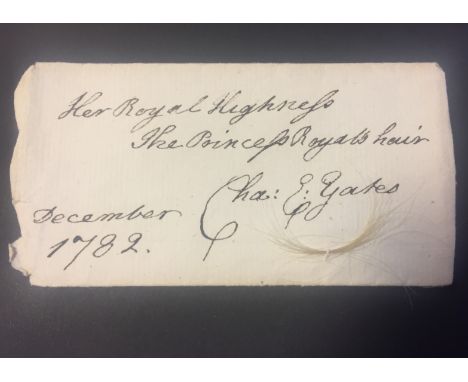 Her Royal Highneſs
The Princeſs Royal's hair
Cha: E: Yates
December
1782.